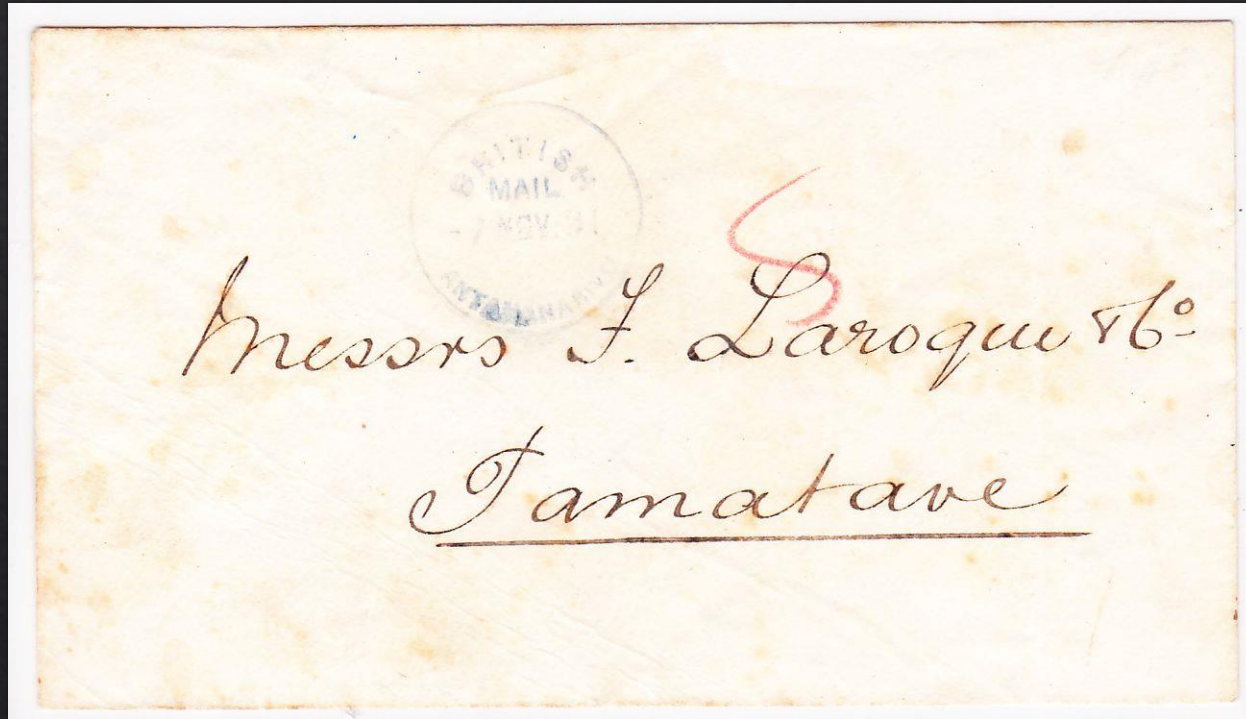 BRITISH
MAIL
-7 NOV. 81
ANTANANARIVO
Messrs F. Laroque & Co
Tamatave